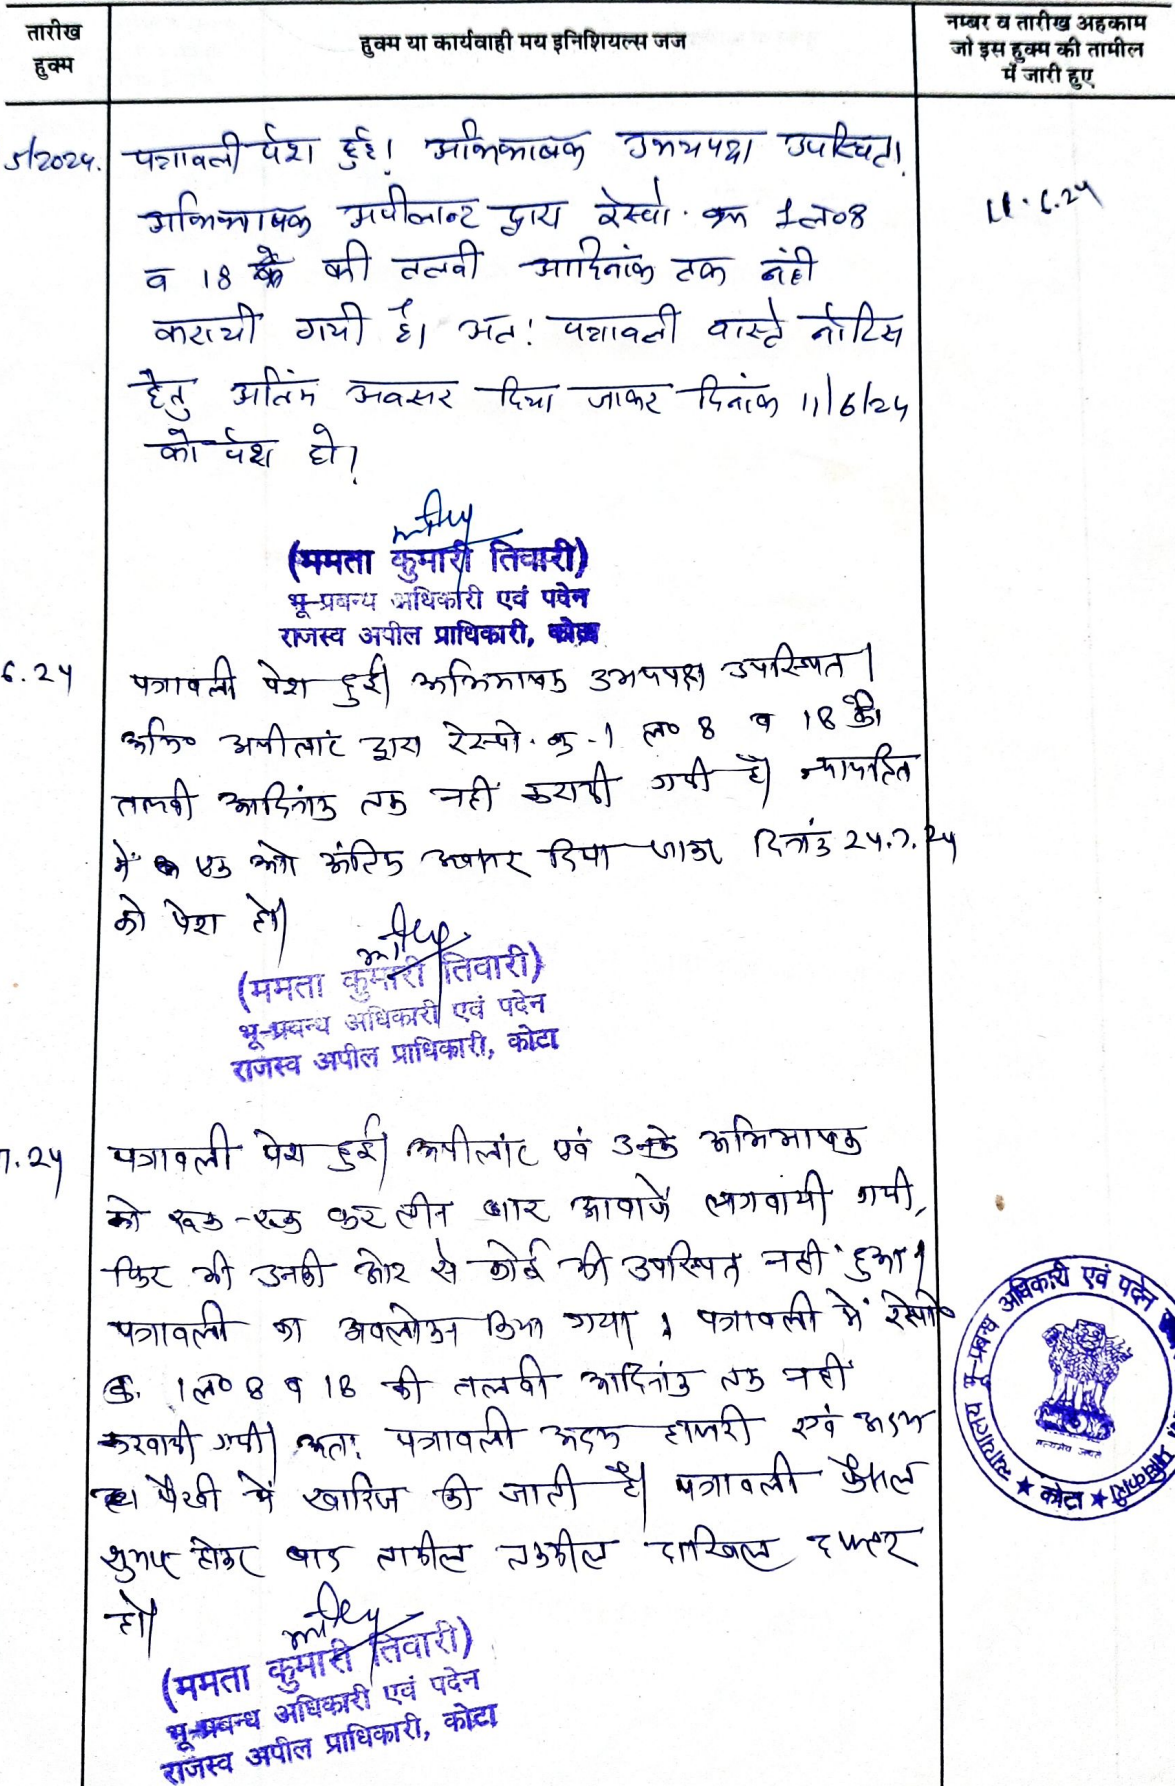 तारीख
हुक्म
हुक्म या कार्यवाही मय इनिशियल्स जज
नम्बर व तारीख अहकाम
जो इस हुक्म की तामील
में जारी हुए
5/2024. पत्रावली पेश हुई। अभिभाषक उभयपक्ष उपस्थित।
अभिभाषक अपीलान्ट द्वारा रेस्पो. क्रम 1 ल० 8
व 18 की तलवी आदिनांक तक नंही
करायी गयी है। अत: पत्रावली वास्ते नोटिस
हेतु अतिंम अवसर दिया जाकर दिनांक 11/6/24
को पेश हो।
11.6.24
(ममता कुमारी तिवारी)
भू-प्रबन्ध अधिकारी एवं पदेन
राजस्व अपील प्राधिकारी, कोटा
6.24 पत्रावली पेश हुई। अभिभाषक उभयपक्ष उपस्थित।
अभि० अपीलांट द्वारा रेस्पो. क्र. -1 ल० 8 व 18 की
तलवी आदिनांक तक नहीं करायी गयी है। न्यायहित
में एक और अंतिम अवसर दिया जाकर दिनांक 24.7.24
को पेश हो।
(ममता कुमारी तिवारी)
भू-प्रबन्ध अधिकारी एवं पदेन
राजस्व अपील प्राधिकारी, कोटा
7.24 पत्रावली पेश हुई। अपीलांट एवं उनके अभिभाषक
को रूक-रूक कर तीन बार आवाजें लगवायी गयी,
फिर भी उनकी ओर से कोई भी उपस्थित नहीं हुआ।
पत्रावली का अवलोकन किया गया। पत्रावली में रेस्पो०
क्र. 1 ल० 8 व 18 की तलवी आदिनांक तक नहीं
करवायी गयी। अतः पत्रावली अदम हाजरी एवं अदम
पैरवी में खारिज की जाती है। पत्रावली फैसल
शुमार होकर बाद तामील तकमील दाखिल दफ्तर
हो।
(ममता कुमारी तिवारी)
भू-प्रबन्ध अधिकारी एवं पदेन
राजस्व अपील प्राधिकारी, कोटा
न्यायालय भू-प्रबन्ध अधिकारी एवं पदेन
सत्यमेव जयते
★ कोटा ★